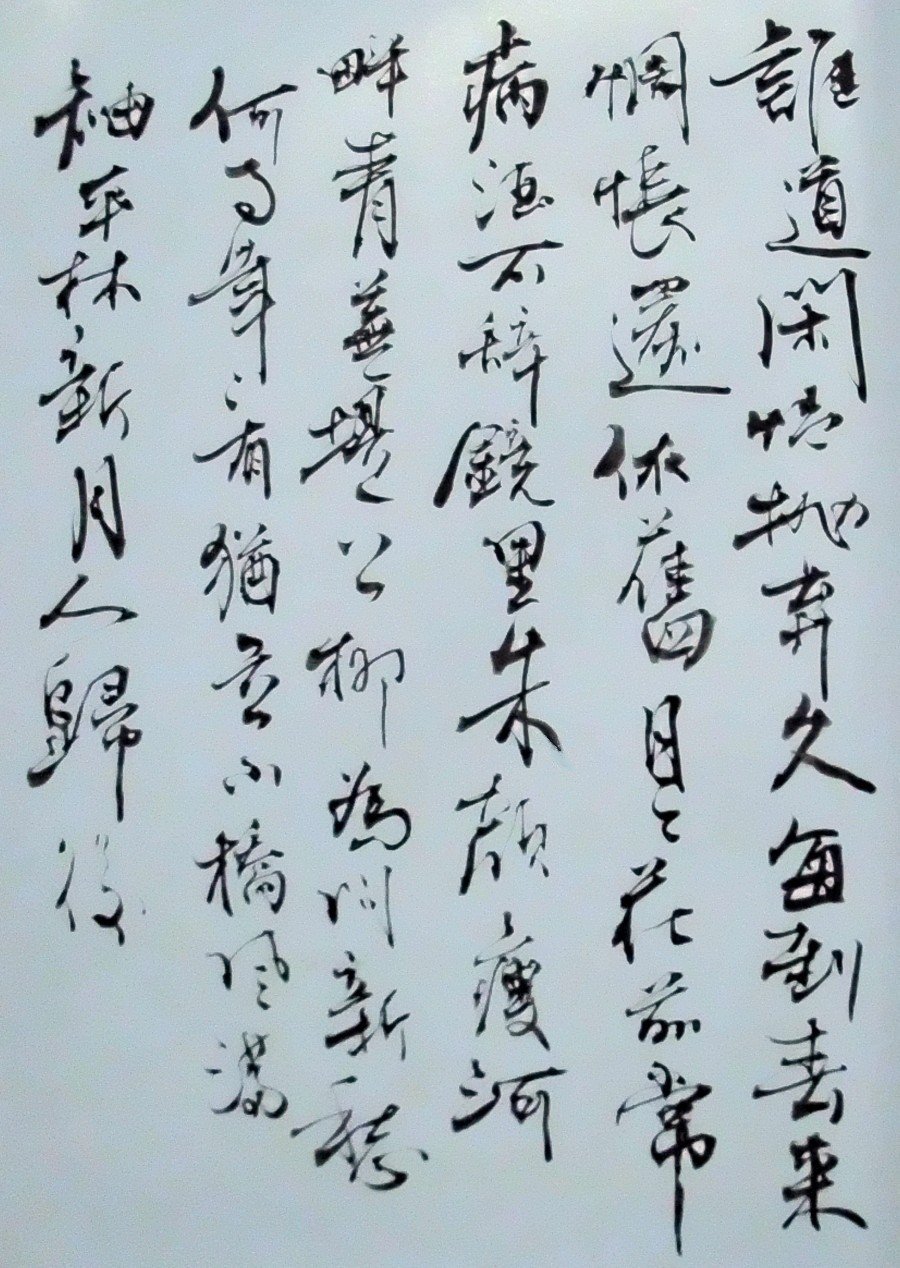 誰道閑情抛棄久每到春来
惆悵還依舊日々花前常
病酒不辞鏡里朱顔瘦河
畔青蕪堤上柳為问新愁
何事年々有猶立小橋风满
袖平林新月人歸後